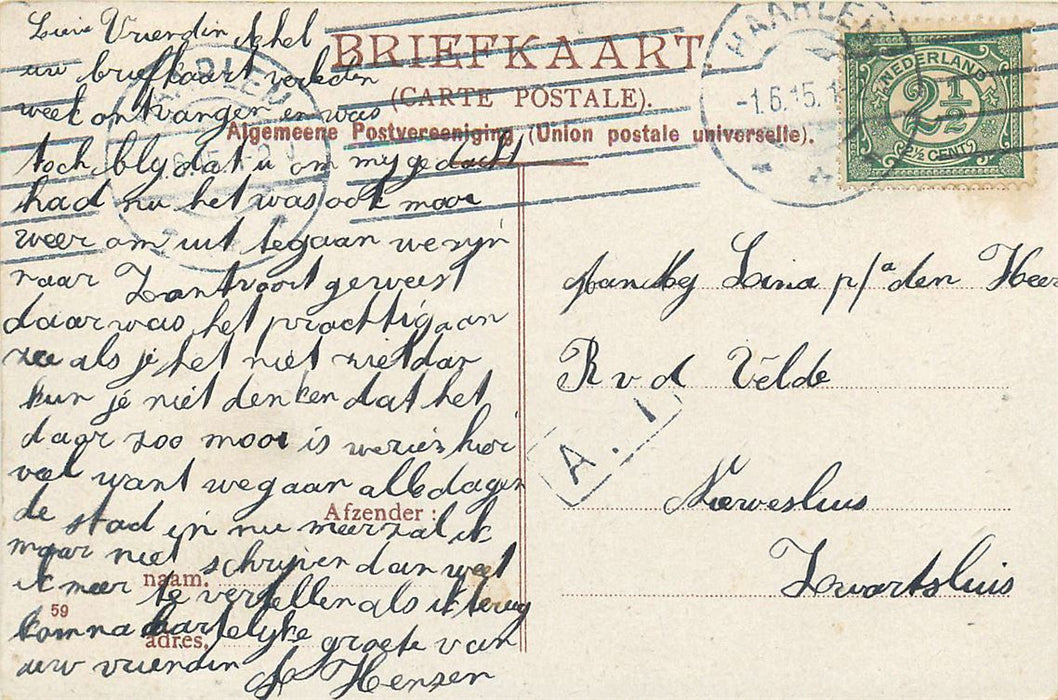 BRIEFKAART
(CARTE POSTALE).
Algemeene Postvereeniging (Union postale universelle).
Lieve Vriendin ik heb
uw briefkaart verleden
week ontvangen en was
toch bly dat u om my gedacht
had nu het was ook mooi
weer om uit te gaan we zyn
naar Zantvoort geweest
daar was het prachtig aan
zee als je het niet ziet dar
kun je niet denken dat het
daar zoo mooi is we zien hier
veel want we gaan alle dagen
de stad in nu meer zal ik
maar niet schrijven dan weet
ik meer te vertellen als ik terug
kom na hartelyke groete van
uw vriendin
Hensen
Afzender :
naam.
59
adres.
HAARLEM
-1.6.15.1
NEDERLAND
2½
2½ CENT
Lina p/a den Heer
R v d Velde
A. 1
Nieuwesluis
Zwartsluis